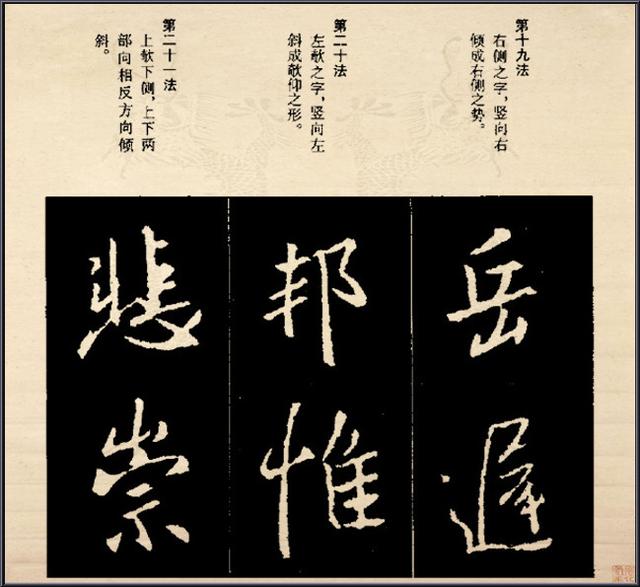 第十九法
右侧之字，竖向右
倾成右侧之势。
第二十法
左欹之字，竖向左
斜成欹仰之形。
第二十一法
上欹下侧，上下两
部向相反方向倾
斜。
岳
遲
邦
惟
悲
崇